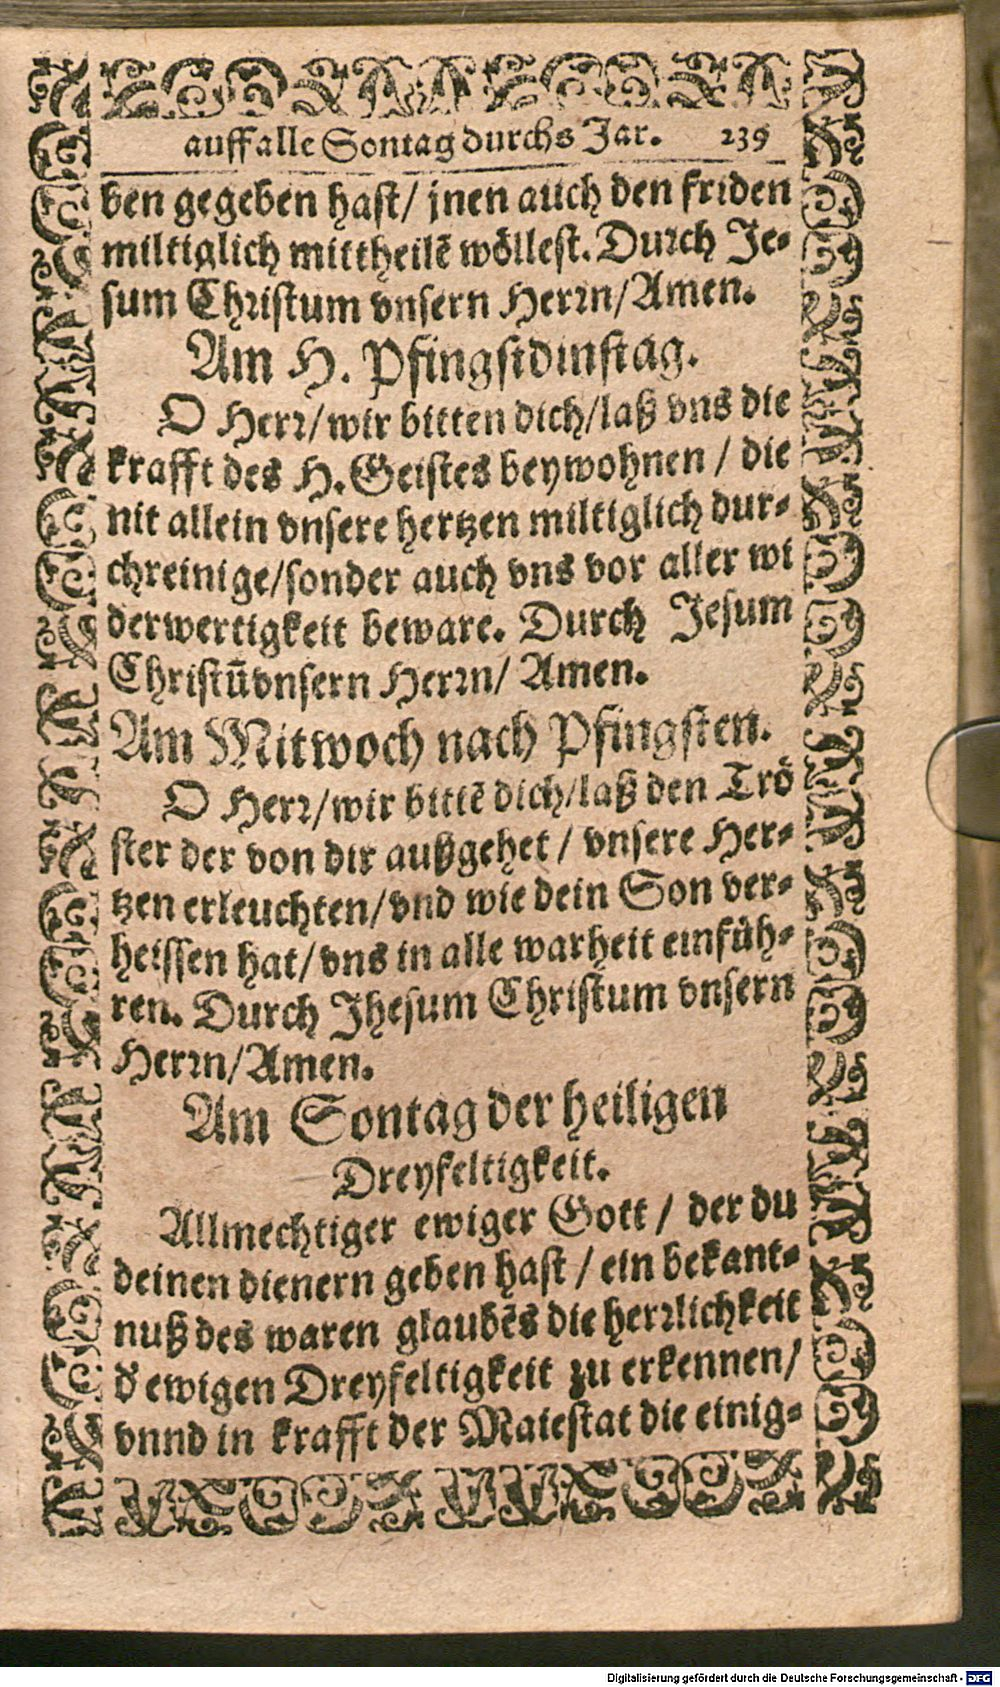 auff alle Sontag durchs Jar. 239
ben gegeben hast/ jnen auch den friden
miltiglich mittheilẽ wöllest. Durch Je-
sum Christum vnsern Herrn/Amen.
Am H. Pfingstdinstag.
O Herr/wir bitten dich/laß vns die
krafft des H. Geistes beywohnen / die
nit allein vnsere hertzen miltiglich dur-
chreinige/sonder auch vns vor aller wi
derwertigkeit beware. Durch Jesum
Christũ vnsern Herrn/ Amen.
Am Mitwoch nach Pfingsten.
O Herr/wir bittẽ dich/laß den Trö
ster der von dir außgehet / vnsere Her-
tzen erleuchten/vnd wie dein Son ver-
heissen hat/vns in alle warheit einfüh-
ren. Durch Jhesum Christum vnsern
Herrn/Amen.
Am Sontag der heiligen
Dreyfeltigkeit.
Allmechtiger ewiger Gott / der du
deinen dienern geben hast / ein bekant-
nuß des waren glaubẽs die herrlichkeit
d̕ ewigen Dreyfeltigkeit zu erkennen/
vnnd in krafft der Maiestat die einig-
Digitalisierung gefördert durch die Deutsche Forschungsgemeinschaft - DFG